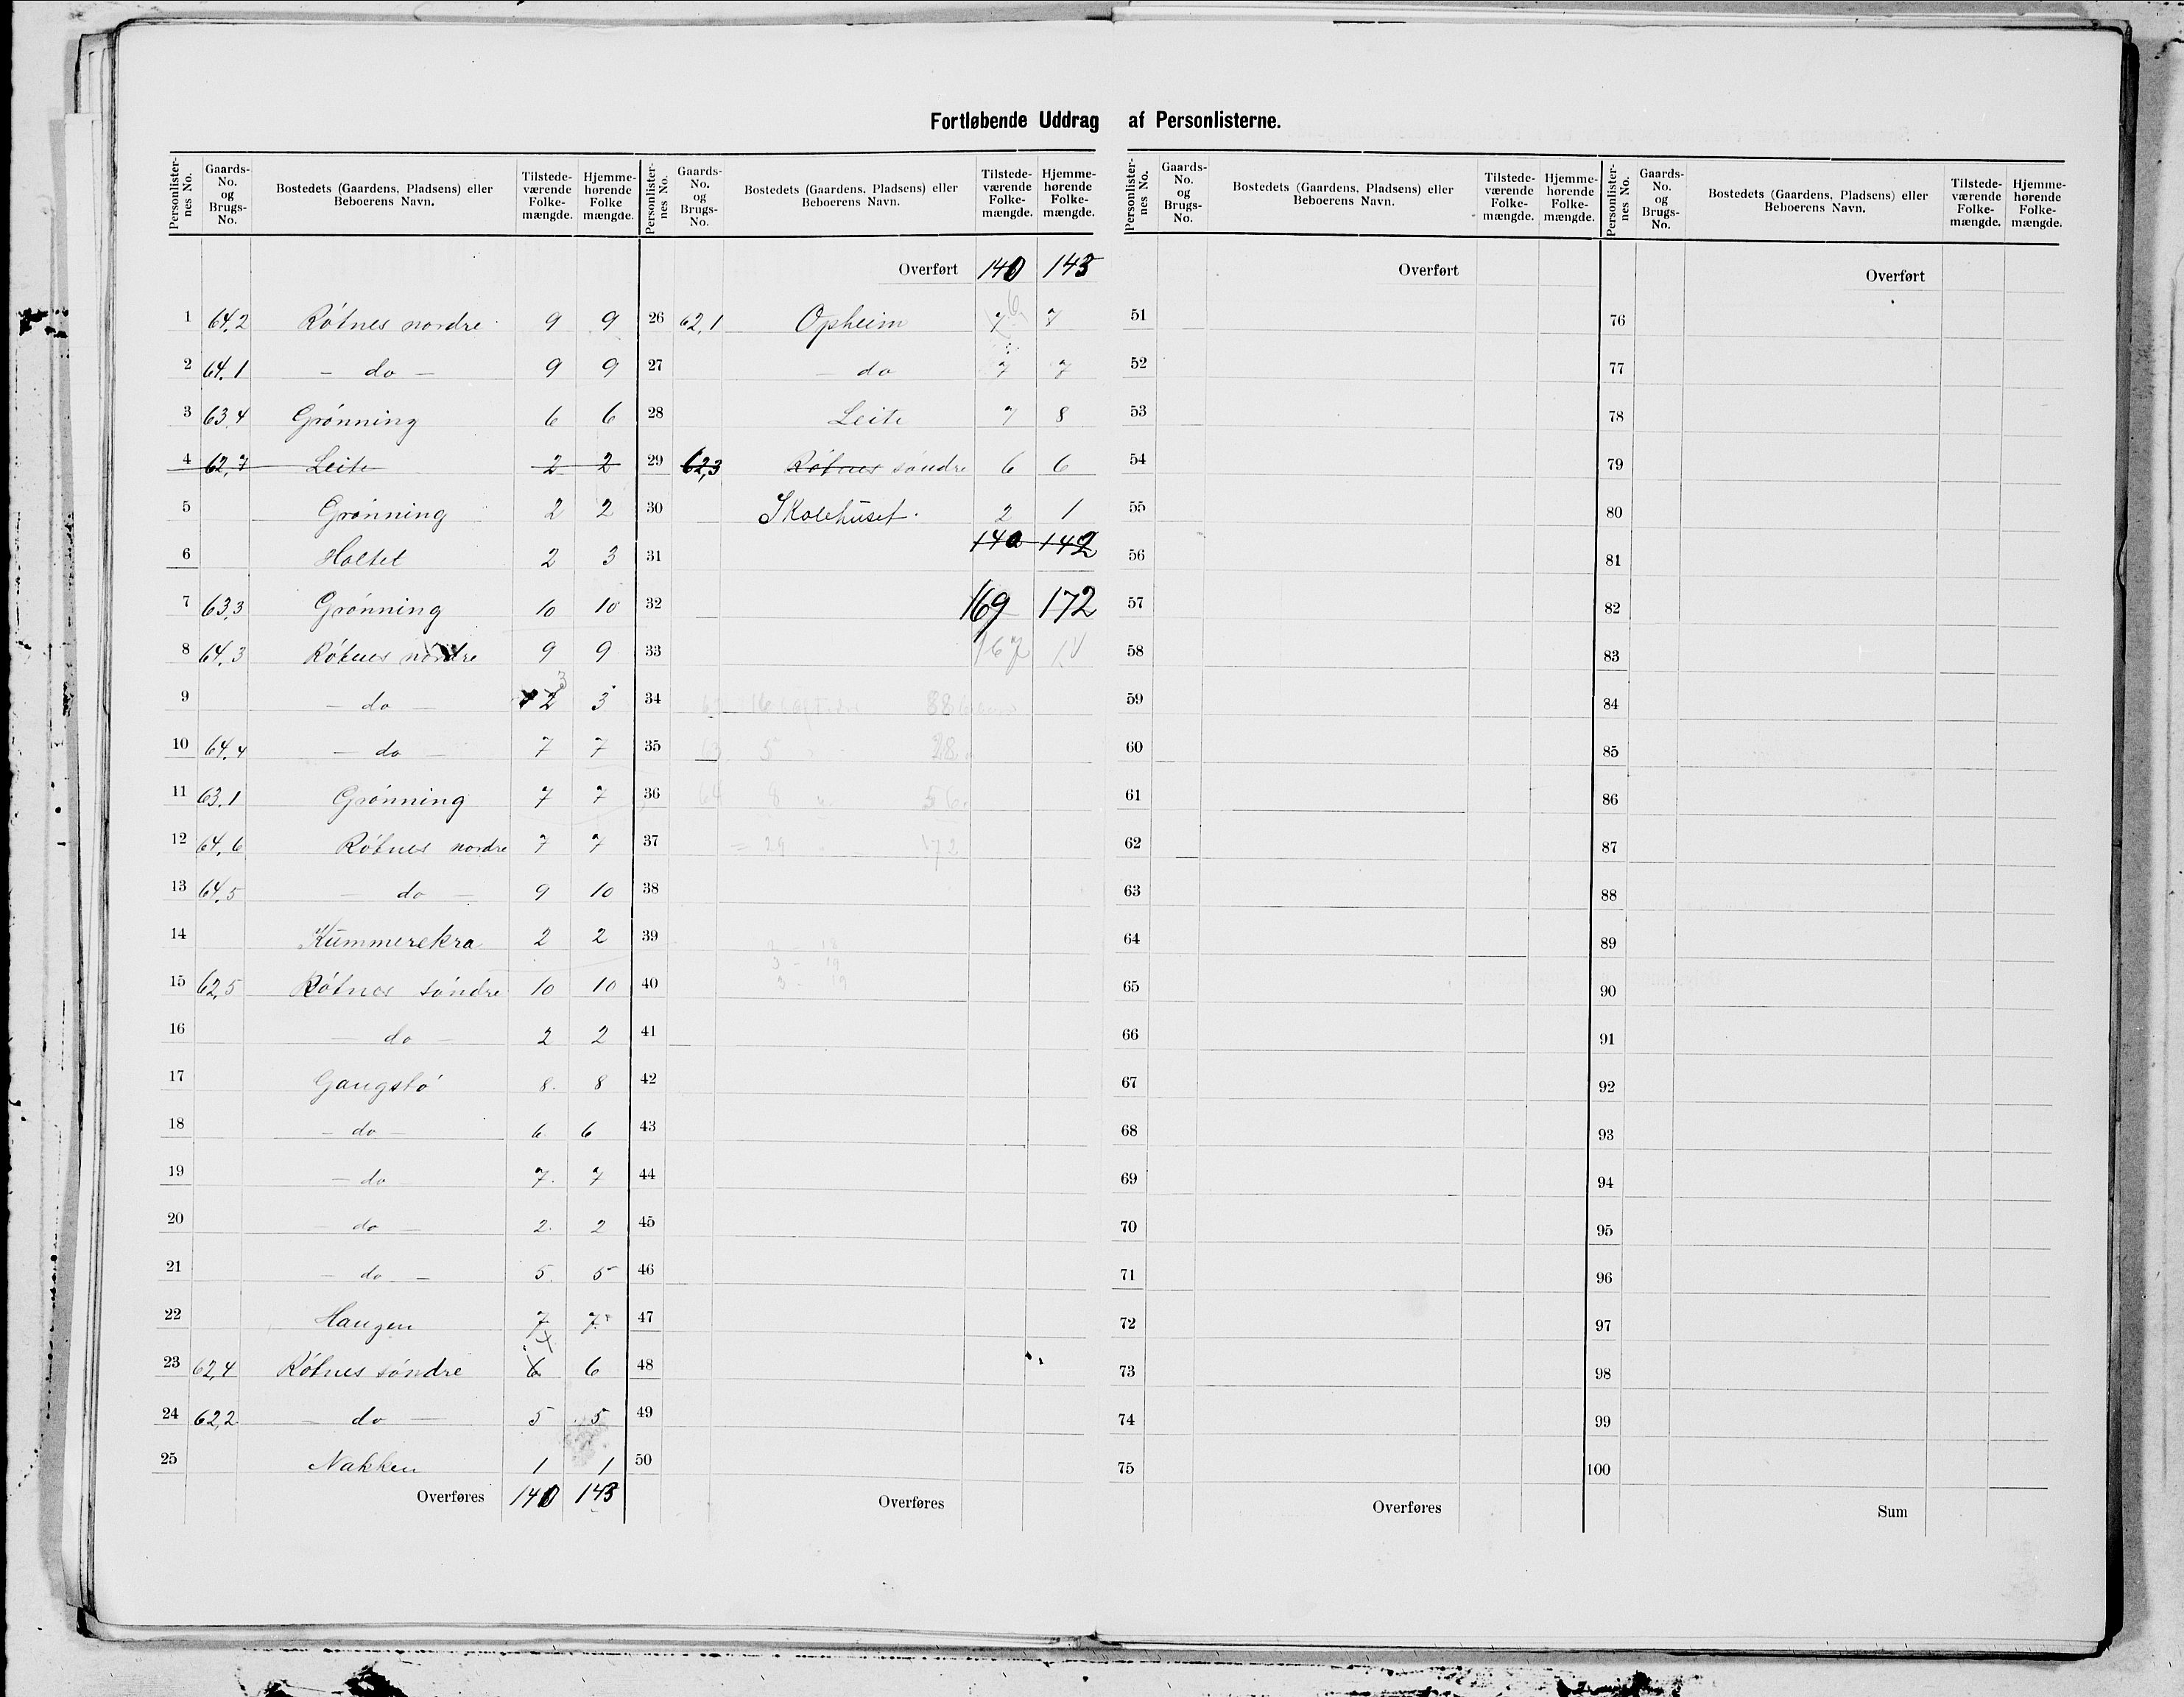 Fortløbende Uddrag af Personlisterne.
Personlister-nes No. Gaards-No. og Brugs-No. Bostedets (Gaardens, Pladsens) eller Beboerens Navn. Tilstede-værende Folke-mængde. Hjemme-hørende Folke mængde.
1 64,2 Røtnes nordre 9 9
2 64,1 – do – 9 9
3 63,4 Grønning 6 6
4 62,7 Leite 2 2
5 Grønning 2 2
6 Holtet 2 3
7 63,3 Grønning 10 10
8 64,3 Røtnes nordre 9 9
9 – do – 2 3 3
10 64,4 – do – 7 7
11 63,1 Grønning 7 7
12 64,6 Røtnes nordre 7 7
13 64,5 – do – 9 10
14 Kummerekra 2 2
15 62,5 Røtnes søndre 10 10
16 – do – 2 2
17 Gaugstø 8 8
18 – do – 6 6
19 – do 7 7
20 – do – 2 2
21 – do – 5 5
22 Haugen 7 7
23 62,4 Røtnes søndre 6 6
24 62,2 – do – 5 5
25 Nakken 1 1
Overføres 140 143
Personlister-nes No. Gaards-No. og Brugs-No. Bostedets (Gaardens, Pladsens) eller Beboerens Navn. Tilstede-værende Folke-mængde. Hjemme-hørende Folke-mængde.
Overført 140 143
26 62,1 Opheim 7 6 7
27 – do 7 7
28 Leite 7 8
29 62,3 Røtnes søndre 6 6
30 Skolehuset. 2 1
140 142
31
32 169 172
33 167
34 88
35 63 5 28
36 64 8 56
37 = 29 172
38
39
3 – 19
40 3 – 19
41
42
43
44
45
46
47
48
49
50
Overføres
Personlister-nes No. Gaards-No. og Brugs-No. Bostedets (Gaardens, Pladsens) eller Beboerens Navn. Tilstede-værende Folke-mængde. Hjemme-hørende Folke-mængde.
Overført
51
52
53
54
55
56
57
58
59
60
61
62
63
64
65
66
67
68
69
70
71
72
73
74
75
Overføres
Personlister-nes No. Gaards-No. og Brugs-No. Bostedets (Gaardens, Pladsens) eller Beboerens Navn. Tilstede-værende Folke-mængde. Hjemme-hørende Folke-mængde.
Overført
76
77
78
79
80
81
82
83
84
85
86
87
88
89
90
91
92
93
94
95
96
97
98
99
100
Sum